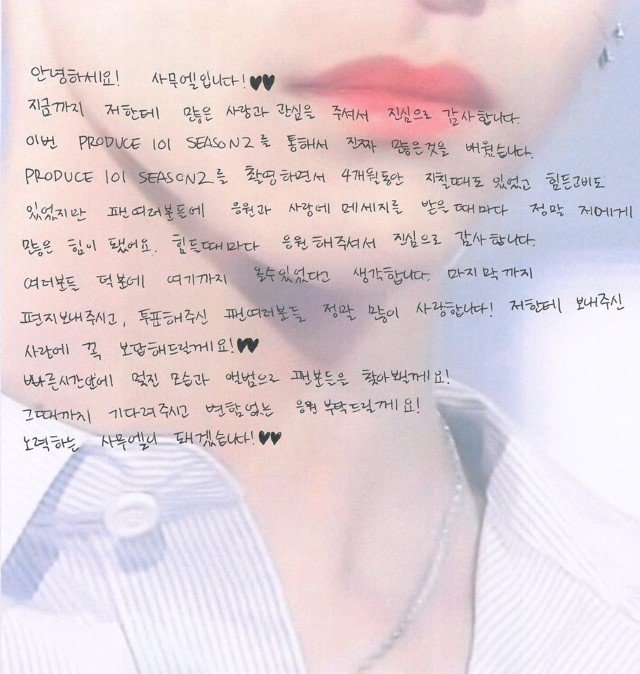 안녕하세요! 사무엘입니다!♥♥
지금까지 저한테 많은 사랑과 관심을 주셔서 진심으로 감사합니다.
이번 PRODUCE 101 SEASON2를 통해서 진짜 많은것을 배웠습니다.
PRODUCE 101 SEASON2를 촬영하면서 4개월동안 지칠때도 있었고 힘든고비도
있었지만 팬여러분듯에 응원과 사랑에 메세지를 받을때마다 정말 저에게
많은 힘이 됐어요. 힘들때마다 응원해주셔서 진심으로 감사합니다.
여러분들 덕분에 여기까지 올수있었다고 생각합니다. 마지막까지
편지보내주시고, 투표해주신 팬여러분들 정말 많이 사랑합니다! 저한테 보내주신
사랑에 꼭 보답해드릴께요!♥♥
빠른시간안에 멋진 모습과 앨범으로 팬분들은 찾아뵐께요!
그때까지 기다려주시고 변함없는 응원 부탁드릴께요!
노력하는 사무엘이 돼겠습니다!♥♥